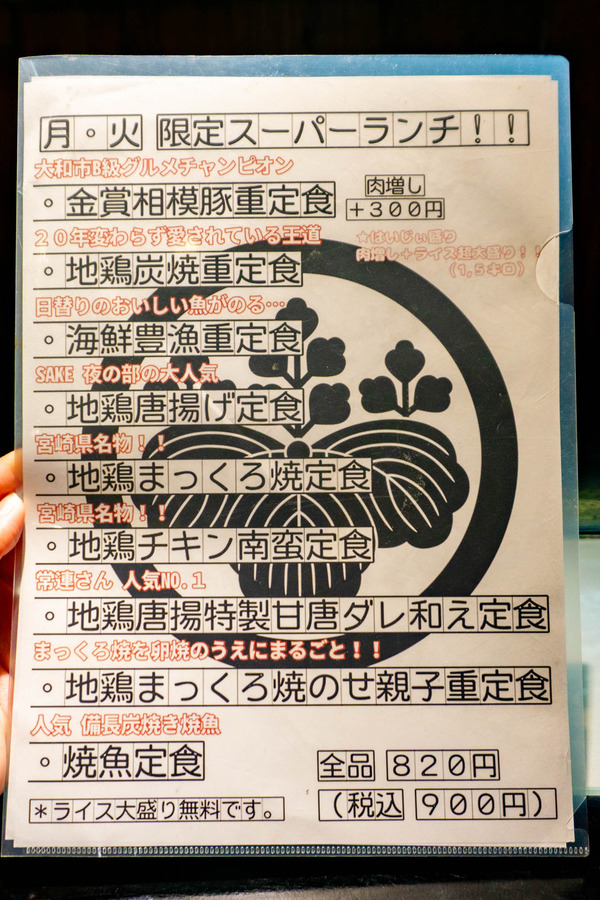 月。火 限定スーパーランチ！！
大和市B級グルメチャンピオン
。金賞相模豚重定食
肉増し
＋３００円
２０年変わらず愛されている王道
★はいじぃ盛り
肉増し＋ライス超大盛り！！
（1,5キロ）
。地鶏炭焼重定食
日替りのおいしい魚がのる…
。海鮮豊漁重定食
SAKE 夜の部の大人気
。地鶏唐揚げ定食
宮崎県名物！！
。地鶏まっくろ焼定食
宮崎県名物！！
。地鶏チキン南蛮定食
常連さん 人気NO.１
。地鶏唐揚特製甘唐ダレ和え定食
まっくろ焼を卵焼のうえにまるごと！！
。地鶏まっくろ焼のせ親子重定食
人気 備長炭焼き焼魚
。焼魚定食
全品 ８２０円
＊ライス大盛り無料です。
（税込 ９００円）